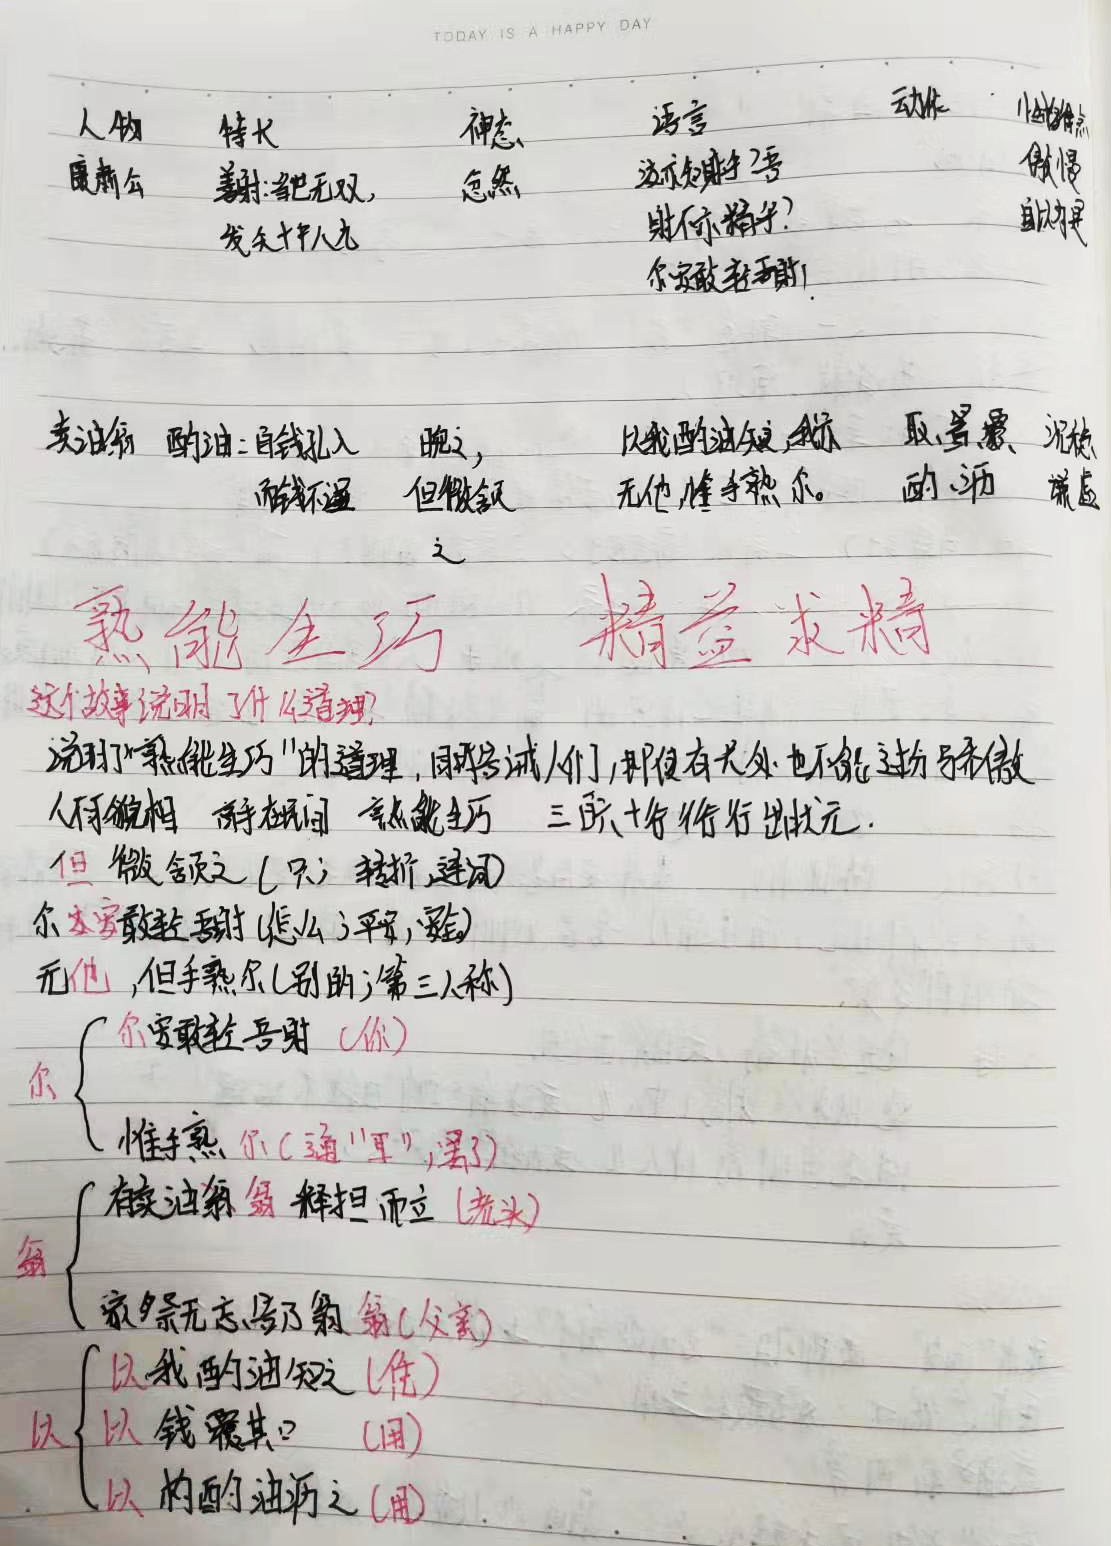 TODAY IS A HAPPY DAY
人物 特长 神态 语言 动作 性格特点
康肃公 善射:当世无双, 忿然 汝亦知射乎?吾 傲慢
发矢十中八九 射不亦精乎? 自以为是
尔安敢轻吾射!
卖油翁 酌油:自钱孔入 睨之, 以我酌油知之,我亦 取、置、覆、 沉稳
而钱不湿 但微颔 无他,惟手熟尔。 酌、沥 谦虚
之
熟能生巧 精益求精
这个故事说明了什么道理?
说明了"熟能生巧"的道理,同时告诫人们,即使有长处也不能过分骄傲
人不可貌相 高手在民间 熟能生巧 三百六十行行行出状元.
但微颔之(只;转折连词)
尔安敢轻吾射(怎么;平安,安全)
无他,但手熟尔(别的;第三人称)
尔安敢轻吾射(你)
尔
惟手熟尔(通"耳",罢了)
有卖油翁翁释担而立(老头)
翁
家祭无忘告乃翁翁(父亲)
以我酌油知之(凭)
以 以钱覆其口 (用)
以杓酌油沥之(用)